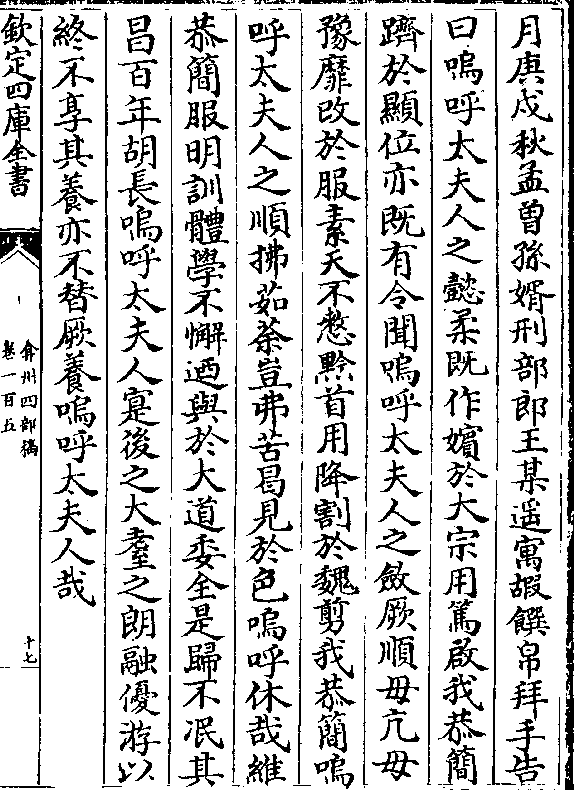 月庚戌秋孟曾孫婿刑部郎王某遥寓嘏饌帛拜手告
曰嗚呼太夫人之懿柔既作嬪於大宗用篤啟我恭簡
躋於顯位亦既有令聞嗚呼太夫人之斂厥順毋亢毋
豫靡改於服素天不憗黔首用降割於魏剪我恭簡嗚
呼太夫人之順拂茹荼豈弗苦曷見於色嗚呼休哉維
恭簡服明訓體學不懈迺與於大道委全是歸不泯其
昌百年胡長嗚呼太夫人寔後之大耋之朗融優游以
終不享其養亦不替厥養嗚呼太夫人哉
欽定四庫全書
弇州四部稿
卷一百五
十七